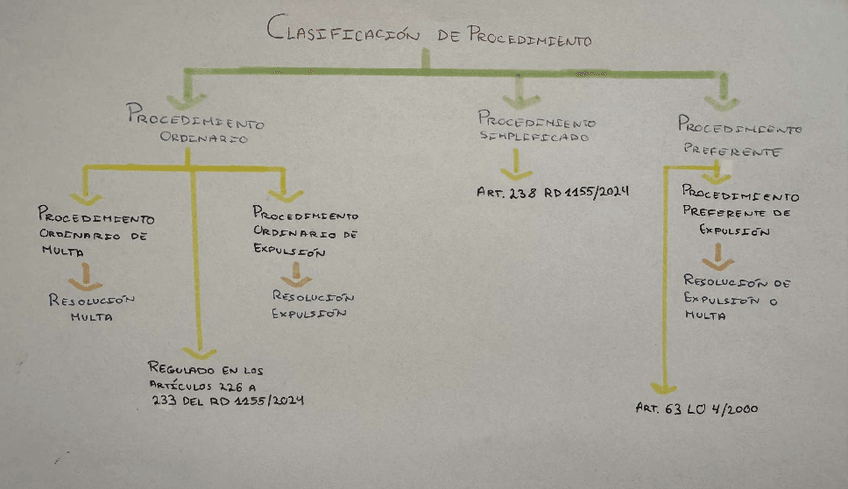 CLASIFICACIÓN DE PROCEDIMIENTO
PROCEDIMIENTO
ORDINARIO
PROCEDIMIENTO
ORDINARIO DE
MULTA
RESOLUCIÓN
MULTA
PROCEDIMIENTO
ORDINARIO DE
EXPULSIÓN
RESOLUCIÓN
EXPULSIÓN
REGULADO EN LOS
ARTÍCULOS 226 A
233 DEL RD 1155/2024
PROCEDIMIENTO
SIMPLIFICADO
ART. 238 RD 1155/2024
PROCEDIMIENTO
PREFERENTE
PROCEDIMIENTO
PREFERENTE DE
EXPULSIÓN
RESOLUCIÓN DE
EXPULSIÓN O
MULTA
ART. 63 LO 4/2000